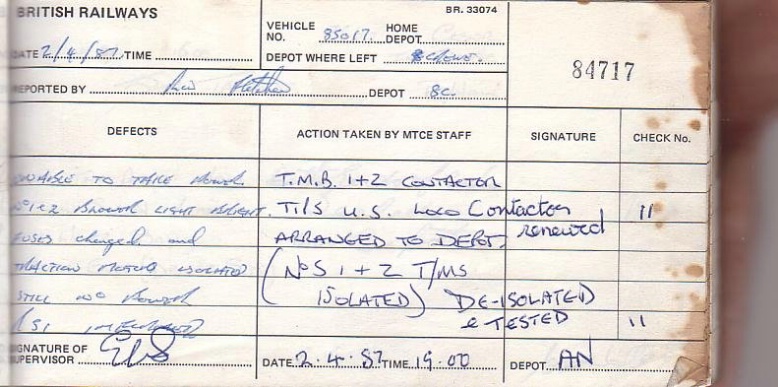 BRITISH RAILWAYS
BR. 33074
VEHICLE NO. 85017 HOME DEPOT
DATE 2/4/87 TIME
DEPOT WHERE LEFT CREWE.
84717
REPORTED BY DEPOT SC.
DEFECTS ACTION TAKEN BY MTCE STAFF SIGNATURE CHECK No.
UNABLE TO TAKE POWER T.M.B. 1+2 CONTACTOR
No 1+2 BLOWER LIGHT BRIGHT. T/S U.S. LOCO Contactor renewed 11
FUSES changed and ARRANGED TO DEPOT.
TRACTION MOTORS ISOLATED (NoS 1 + 2 T/MS
STILL NO POWER ISOLATED) DE-ISOLATED
& TESTED 11
SIGNATURE OF SUPERVISOR DATE 2.4.87 TIME 19.00 DEPOT AN